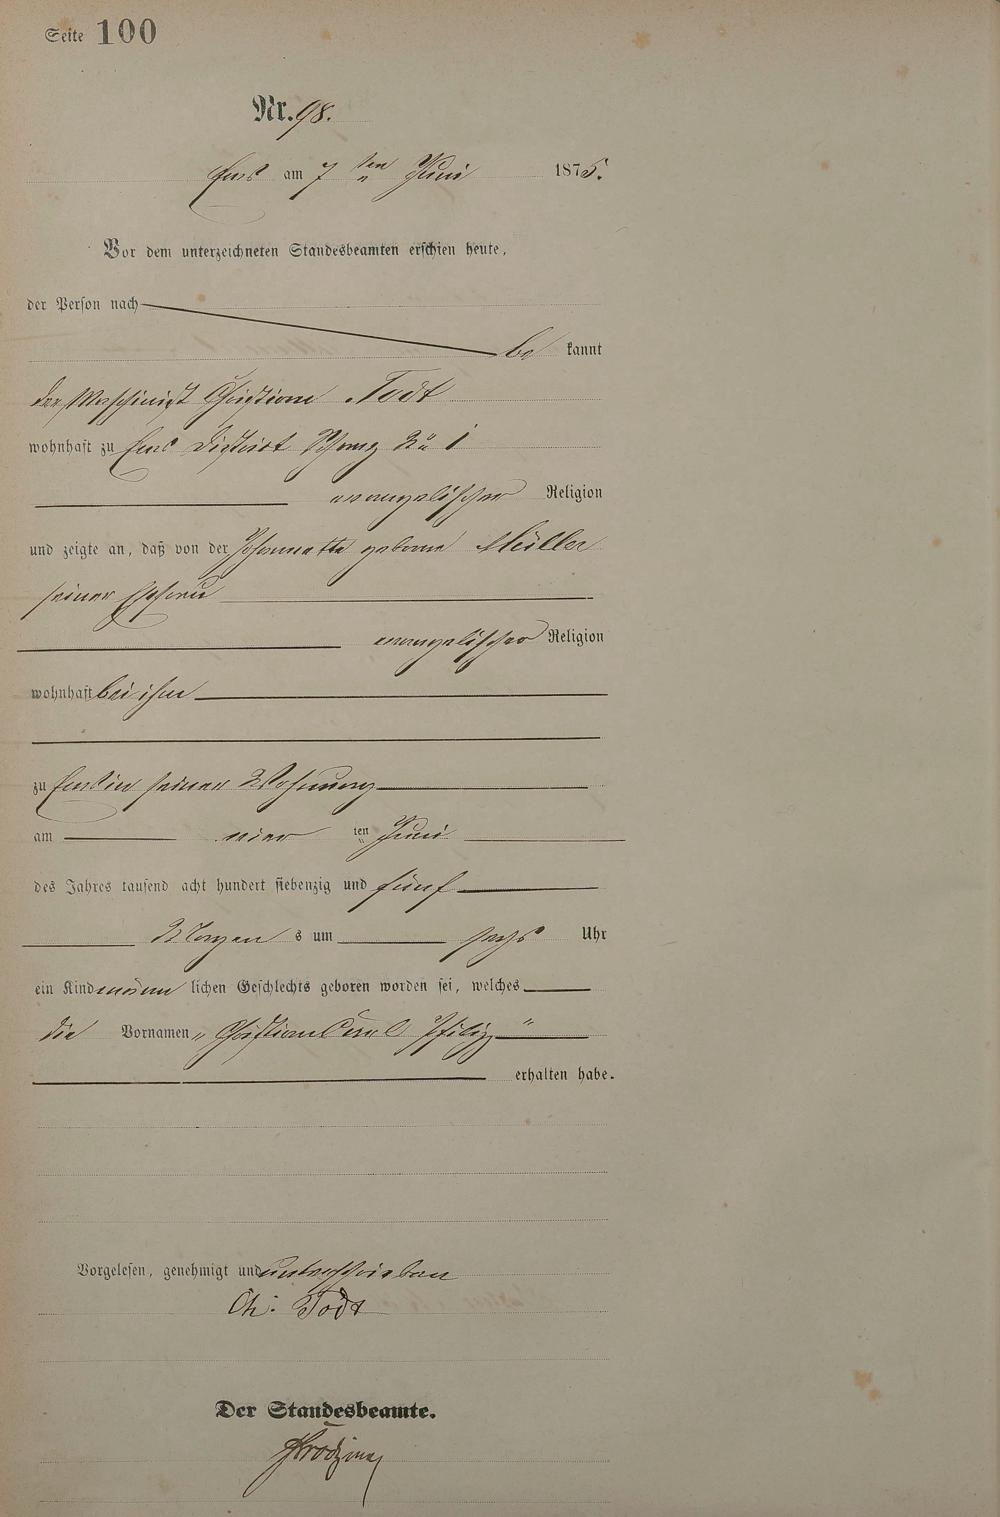 Seite 100
Nr. 98.
Ems am 7 ten Juni 1875.
Vor dem unterzeichneten Standesbeamten erschien heute,
der Person nach
be kannt
der Maschinist Christian Todt
wohnhaft zu Ems District No 1
evangelischer Religion
und zeigte an, daß von der Johannette geborne Müller
seiner Ehefrau
evangelischer Religion
wohnhaft bei ihm
zu Ems in seiner Wohnung
am vier ten Juni
des Jahres tausend acht hundert siebenzig und fünf
Morgen s um sechs Uhr
ein Kind männ lichen Geschlechts geboren worden sei, welches
die Vornamen „Christian Carl Philipp"
erhalten habe.
Vorgelesen, genehmigt und unterschrieben
Ch: Todt
Der Standesbeamte.